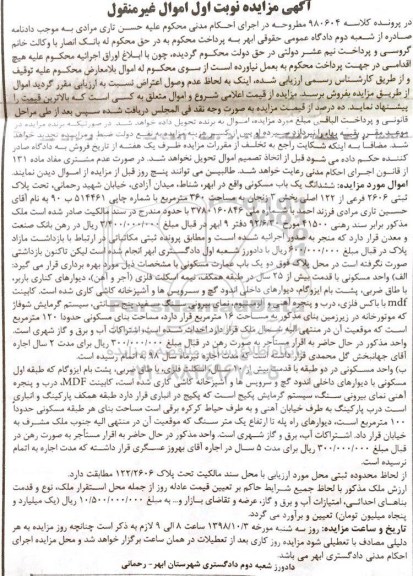 آگهی مزایده نوبت اول اموال غیرمنقول
در پرونده کلاسه ۹۸۰۶۰۴ مطروحه در اجرای احکام مدنی محکوم علیه حسن تاری مرادی به موجب دادنامه
صادره از شعبه دوم دادگاه عمومی حقوقی ابهر به پرداخت محکوم به در حق محکوم له بانک انصار با وکالت خانم
گروسی و پرداخت نیم عشر دولتی در حق دولت محکوم گردیده، چون با ابلاغ اوراق اجرائیه محکوم علیه هیچ
اقدامی در جهت پرداخت محکوم به بعمل نیاورده است از سوی محکوم له اموال بلامعارض محکوم علیه توقیف
و از طریق کارشناس رسمی ارزیابی شده، اینک به لحاظ عدم وصول اعتراض نسبت به ارزیابی مقرر گردید اموال
از طریق مزایده بفروش برسد. مزایده از قیمت اعلامی شروع و اموال متعلق به کسی است که بالاترین قیمت را
پیشنهاد نماید. ده درصد از قیمت مزایده به صورت وجه نقد فی المجلس دریافت شده سپس بعد از طی مراحل
قانونی و پرداخت الباقی مبلغ مورد مزایده، اموال به برنده تحویل داده خواهد شد
مضافاً به اینکه شکایت راجع به تخلف از مقررات مزایده ظرف یک هفته از تاریخ فروش به دادگاه صادر
کننده حکم داده می شود قبل از اتخاذ تصمیم اموال تحویل نخواهد شد. در صورت عدم مشتری مفاد ماده ۱۳۱
از قانون اجرای احکام مدنی رعایت خواهد شد. طالبیین می توانند پنج روز قبل از مزایده از اموال دیدن نمایند.
اموال مورد مزایده: ششدانگ یک باب مسکونی واقع در ابهر، شناط، میدان آزادی، خیابان شهید رحمانی، تحت پلاک
ثبتی ۲۶۰۶ فرعی از ۱۲۲ اصلی بخش ۲ زنجان به مساحت ۳۶۰ مترمربع با شماره چاپی ۵۱۴۴۶۱ ب ۹۰ به نام آقای
حسن تاری مرادی فرزند احمد به شماره ملی با حدود مندرج در سند مالکیت صادر شده است ملک
مذکور برابر سند رهنی ۴۱۵۰۰ مورخ دفتر ۹ ابهر در قبال مبلغ ریال در رهن بانک صنعت
و معدن قرار دارد که منجر به صدور اجرائیه شده است و مطابق پرونده ثبتی مکاتباتی در ارتباط با بازداشت مازاد
پلاک در قبال مبلغ ریال با دادورز شعبه اول دادگستری ابهر انجام شده است لیکن تاکنون بازداشتی
صورت نگرفته است در محل پلاک فوق دو یک باب عمارت مسکونی با مشخصات ذیل مورد بهره برداری قرار می گیرد:
الف) واحد مسکونی با قدمت بیش از ۲۵ سال در طبقه همکف، نیمه اسکلت فلزی (آجر و آهن)، دیوارهای کناری باربر،
با طاق ضربی، پشت بام ایزوگام، دیوارهای داخلی اندود گچ و سرویس ها و آشپزخانه کاشی کاری شده است. کابینت
mdf با کس فلزی، درب و پنجره آهنی و آلومینیوم، نمای بیرونی سنگ سفید سیستم گرمایش شوفاژ
که موتورخانه در زیرزمین بنای مذکور به مساحت ۱۶ مترمربع قرار دارد، مساحت بنای مسکونی حدوداً ۱۲۰ مترمربع
است که موقعیت آن در منتهی الیه شمال ملک قرار دارد احداث شده است، اشتراکات آب و برق و گاز شهری است.
واحد مذکور در حال حاضر به اقرار مستأجر به صورت رهن در قبال مبلغ ۳۰۰/۰۰۰/۰۰۰ ریال برای مدت ۲ سال اجاره
آقای جهانبخش گل محمدی قرار داشته که مدت اجاره تیرماه سال ۹۸ به اتمام رسیده است.
ب) واحد مسکونی در دو طبقه با قدمت بیش از سال، اسکلت فلزی، با طاق ضربی، پشت بام ایزوگام که طبقه اول
مسکونی با دیوارهای داخلی اندود گچ و سرویس ها و آشپزخانه کاشی کاری شده است، کابینت MDF، درب و پنجره
آهنی نمای بیرونی سنگ، سیستم گرمایش پکیج است که پکیج در انباری قرار دارد طبقه همکف پارکینگ و انباری
است درب پارکینگ به طرف خیابان آهنی و به طرف حیاط کرکره برقی است مساحت بنای هر طبقه مسکونی حدوداً
۱۰۰ مترمربع است، دیوارهای راه پله تا ارتفاع یک متر سنگ که موقعیت آن در منتهی الیه جنوب ملک مشرف به
خیابان قرار داد. اشتراکات آب، برق و گاز شهری است. واحد مذکور در حال حاضر به اقرار مستأجر به صورت رهن در
قبال مبلغ ۳۰۰/۰۰۰/۰۰۰ ریال برای مدت ۵ سال در اجاره آقای بهروز عسگری قرار داشته که مدت اجاره به اتمام
نرسیده است.
از لحاظ محدوده ثبتی محل مورد ارزیابی با محل سند مالکیت تحت پلاک ۱۲۲/۲۶۰۶ مطابقت دارد.
ارزش ملک مذکور با لحاظ جمیع شرایط حاکم بر تعیین قیمت عادله روز از جمله محل استقرار ملک، نوع و قدمت
بناهای احداثی، امتیازات آب و برق و گاز، عرضه و تقاضای بازار و... به مبلغ ۱۰/۵۰۰/۰۰۰/۰۰۰ ریال (یک میلیارد و
پنجاه میلیون تومان) تعیین و برآورد می گردد.
تاریخ و ساعت مزایده: روز سه شنبه مورخه ۱۳۹۸/۱۰/۳ ساعت ۸ الی ۹ لازم به ذکر است چنانچه روز مزایده به هر
دلیلی مصادف با تعطیلی شود مزایده روز کاری بعد از تعطیلات در همان ساعت برگزار خواهد شد و محل مزایده اجرای
احکام مدنی دادگستری ابهر می باشد.
دادورز شعبه دوم دادگستری شهرستان ابهر- رحمانی